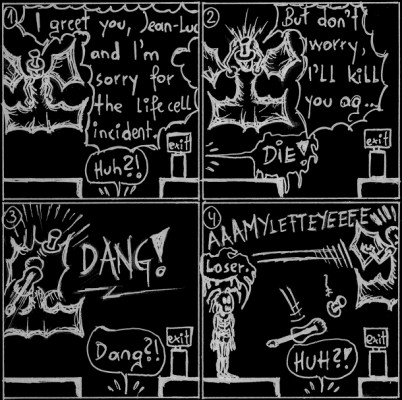 1
I greet you, Jean-Luc
and I'm
sorry for
the lifecell
incident.
exit
Huh?!
2
But don't
worry,
I'll kill
you ag...
DIE!
exit
3
DANG!
Dang?!
exit
4
AAAMYLEFTEYEEEE
Loser.
exit
HUH?!